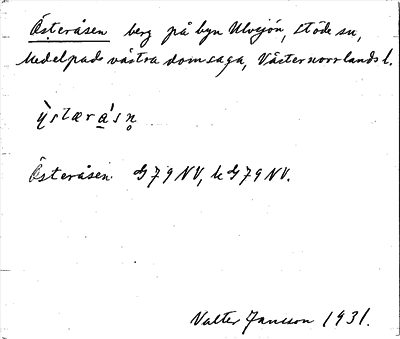 Österåsen berg på byn Ulvsjön, Stöde sn,
Medelpads västra domsaga, Västernorrlands l.
ỳstærá̱sn̥
Österåsen G79NV, k G79NV.
Valter Jansson 1931.